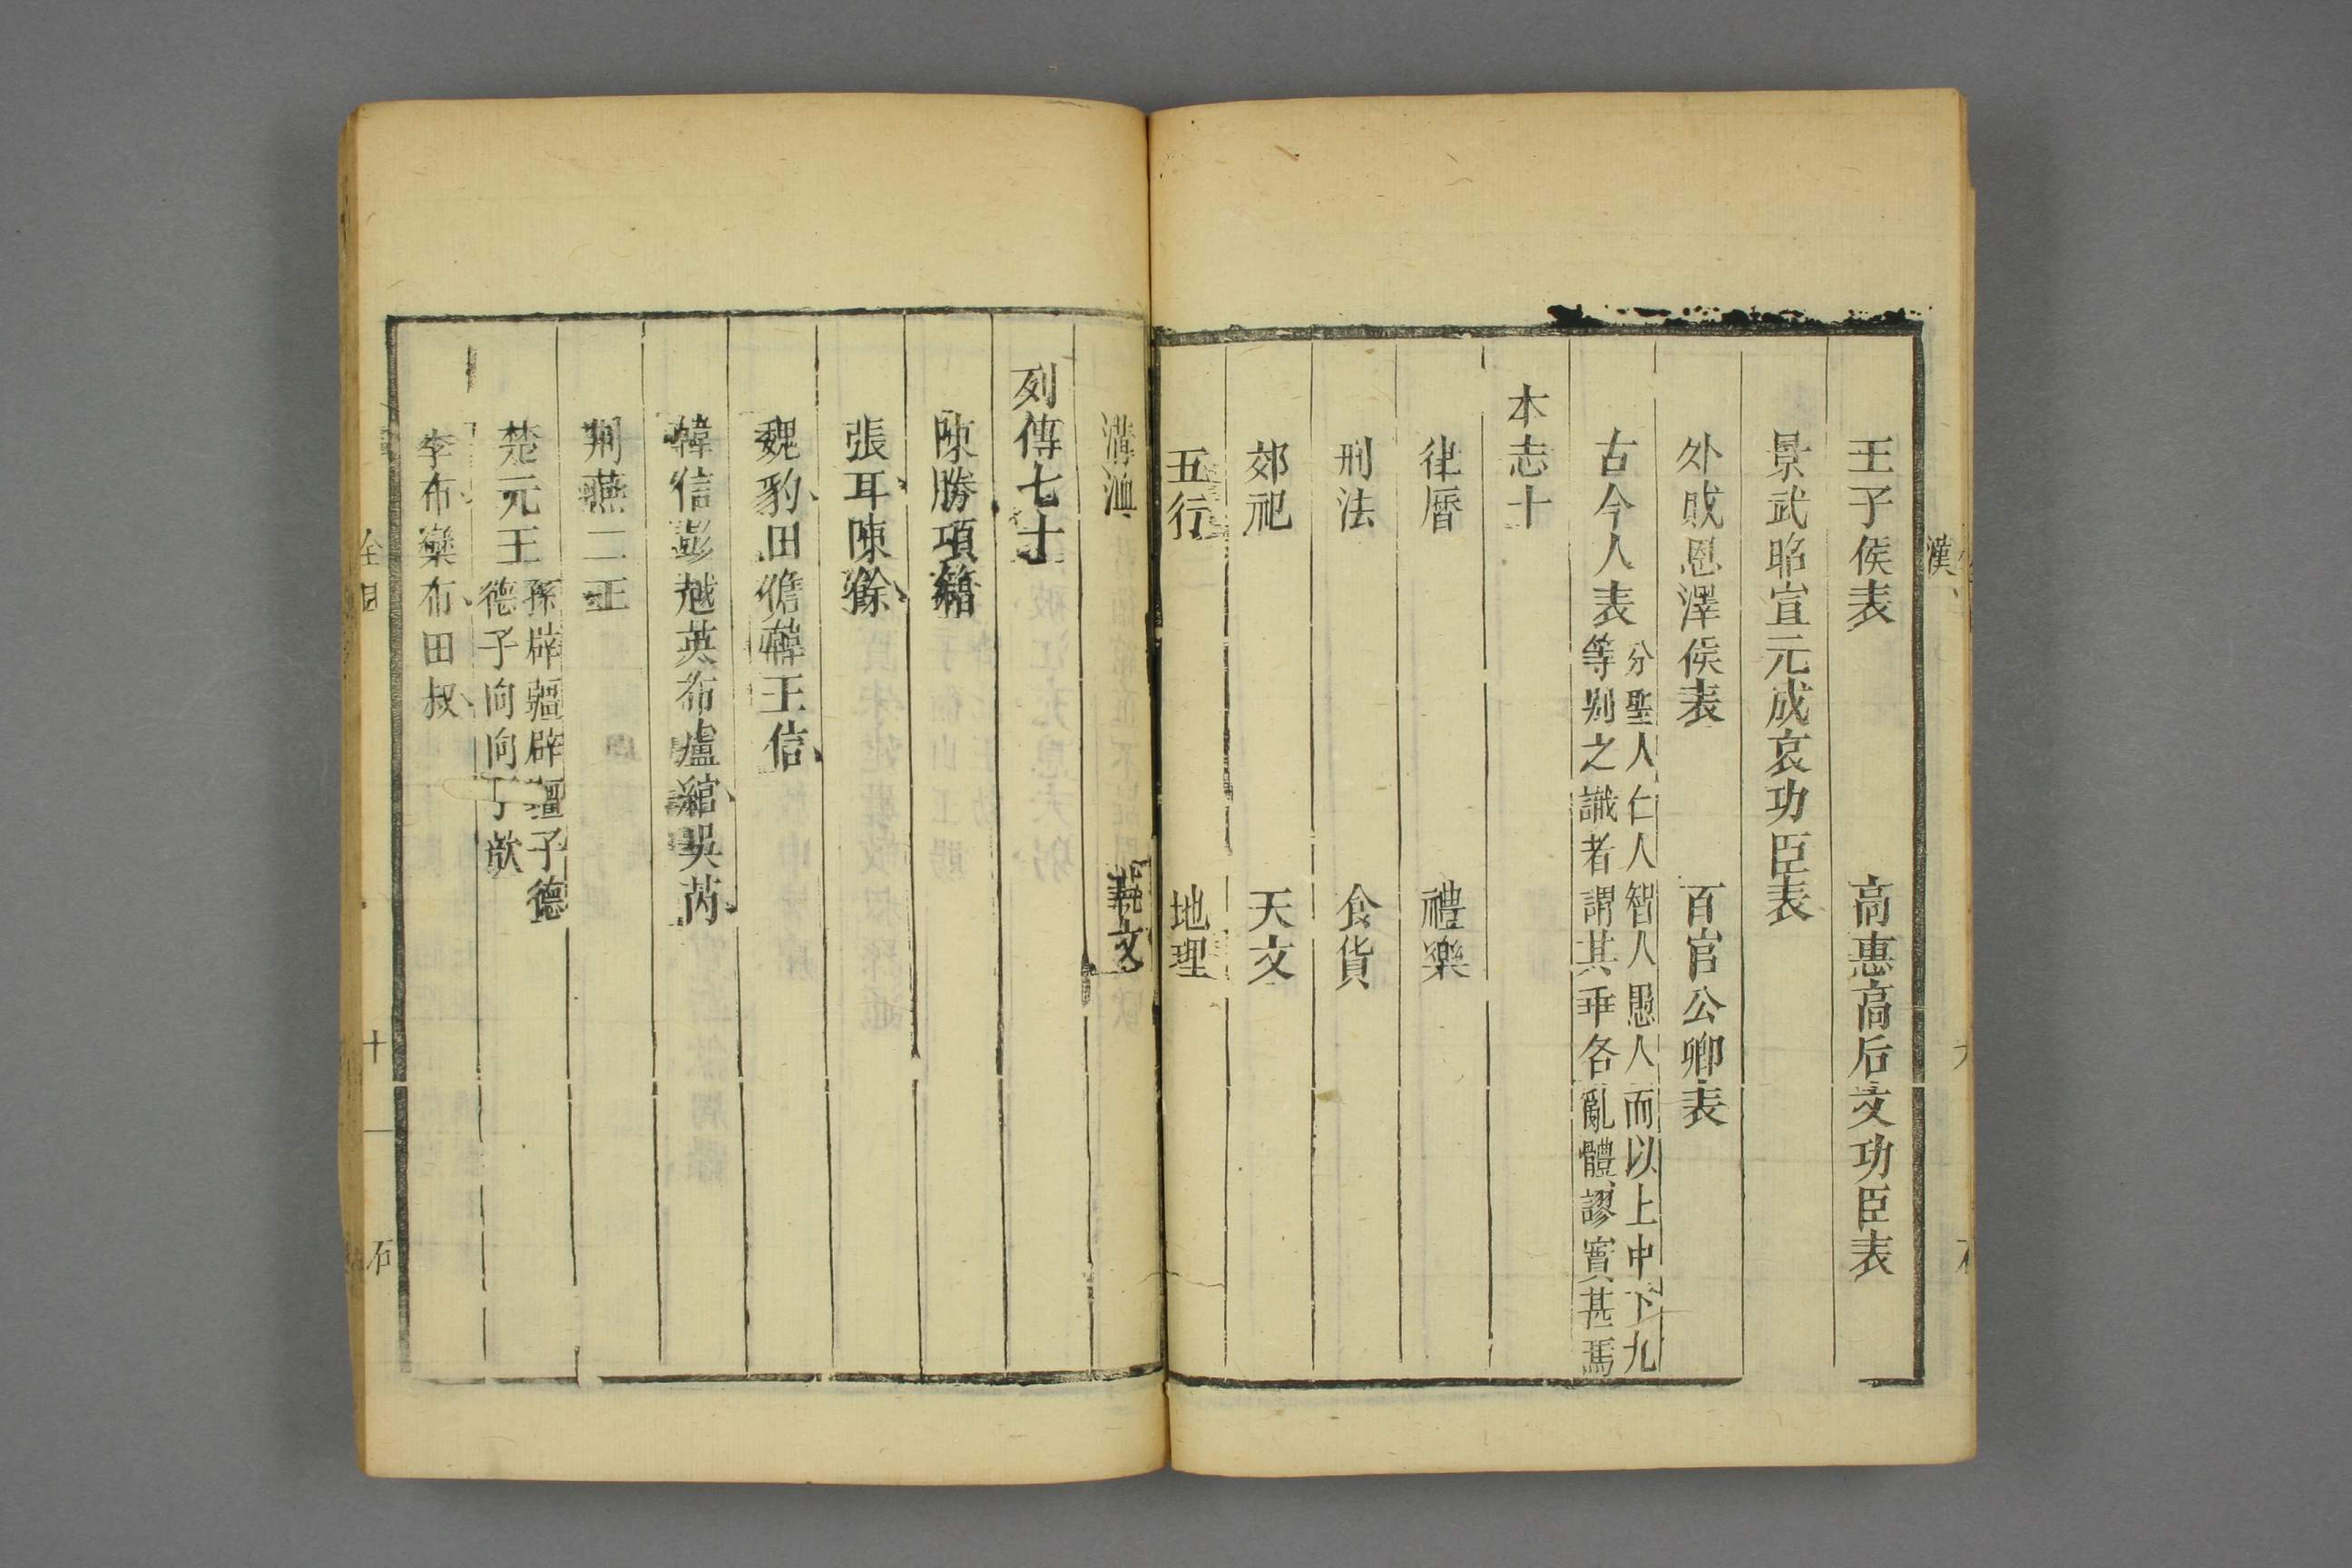 王子侯表　高惠高后文功臣表
景武昭宣元成哀功臣表
外戚恩澤侯表　百官公卿表
古今人表 分聖人仁人智人愚人而以上中下九
等別之識者謂其乖各亂體謬實甚焉
本志十
律曆　禮樂
刑法　食貨
郊祀　天文
五行　地理
溝洫　藝文
列傳七十
陳勝項籍
張耳陳餘
魏豹田儋韓王信
韓信彭越英布盧綰吳芮
荆燕二王
楚元王 孫辟疆辟疆子德
德子向向子歆
季布欒布田叔
全目　十　石